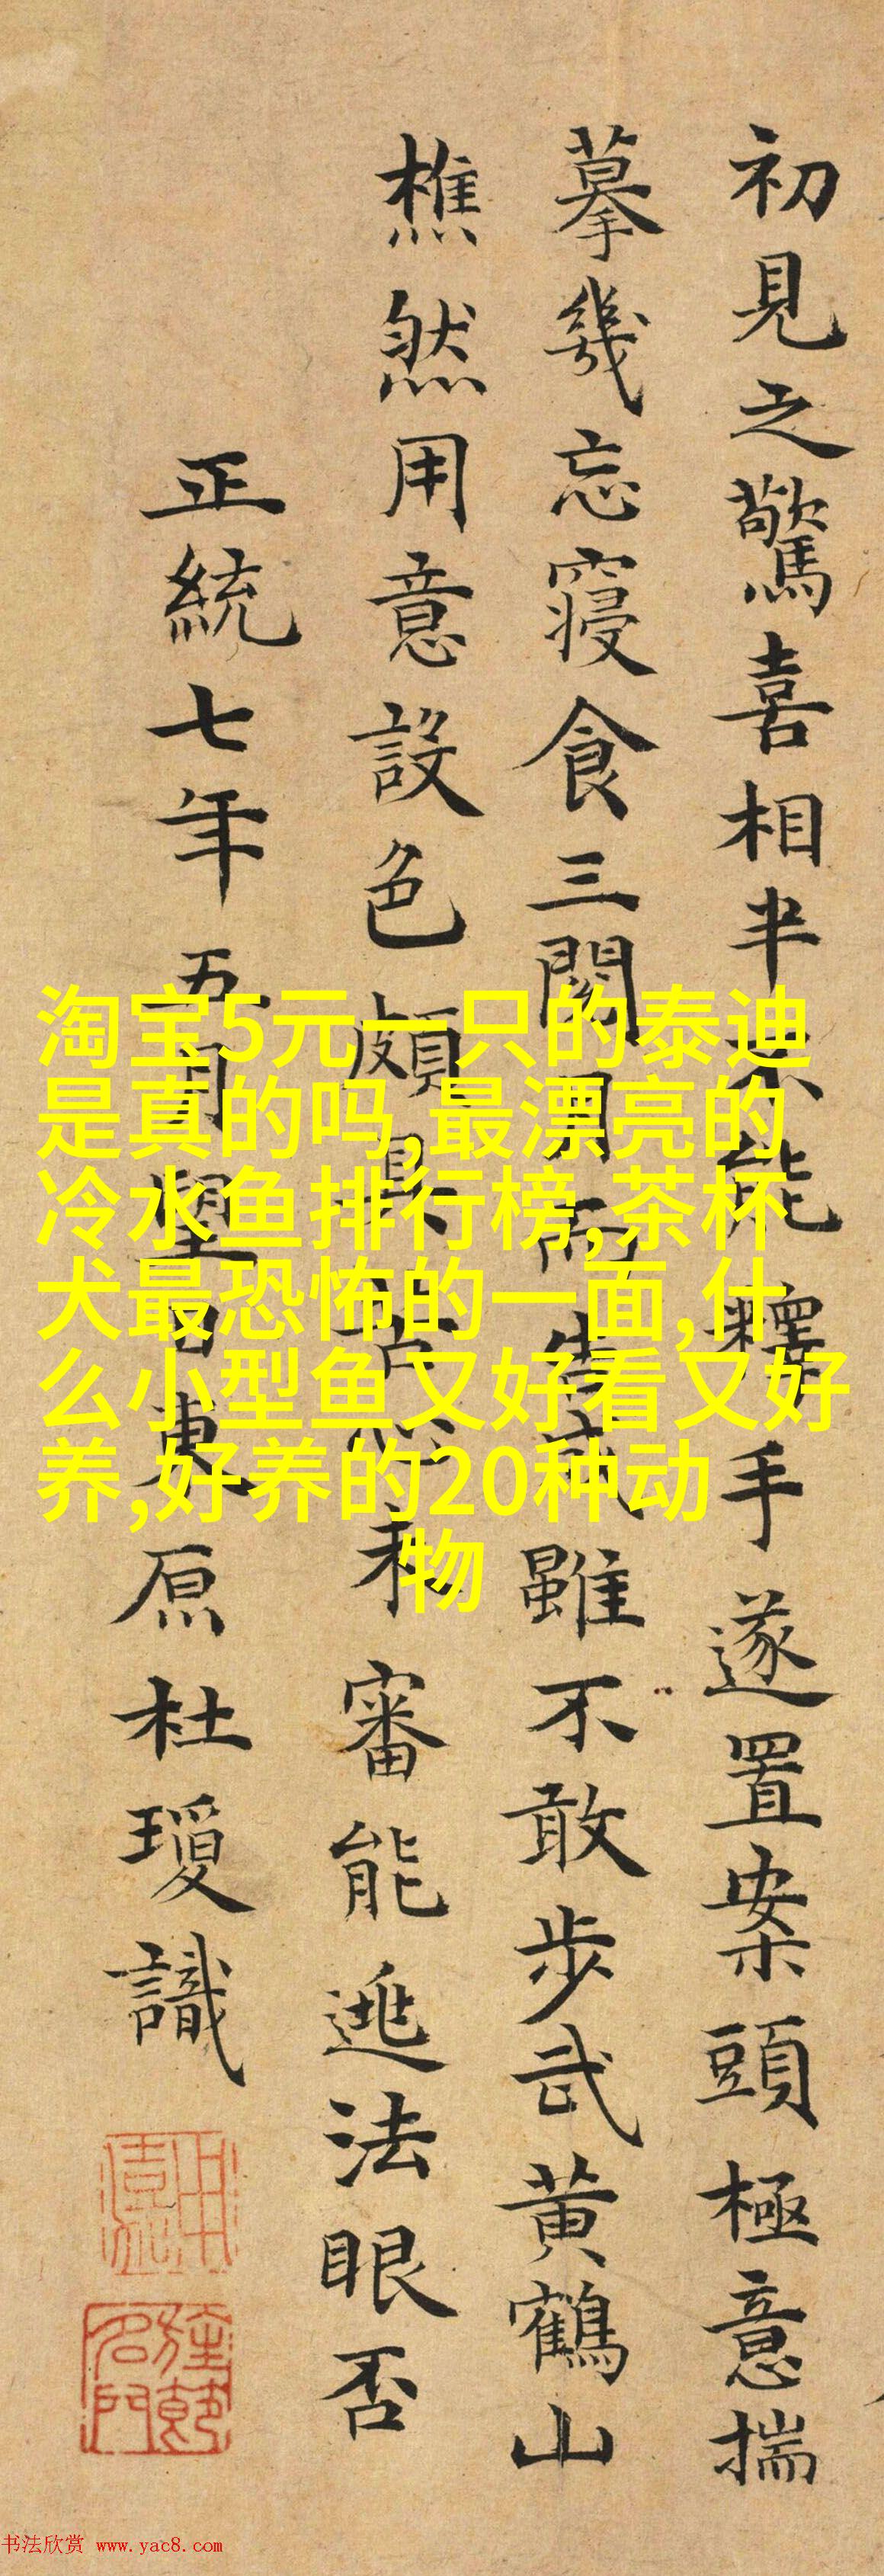 初見之驚喜相半不能釋手遂置案頭極意揣
摹幾忘寢食三閱月而告成雖不敢步武黃鶴山
樵然用意設色頗具古審能逃法眼否
正統七年五月望日東原杜瓊識
淘宝5元一只的泰迪
是真的吗,最漂亮的
冷水鱼排行榜,茶杯
犬最恐怖的一面,什
么小型鱼又好看又好
养,好养的20种动
物
书法欣赏 www.yac8.com